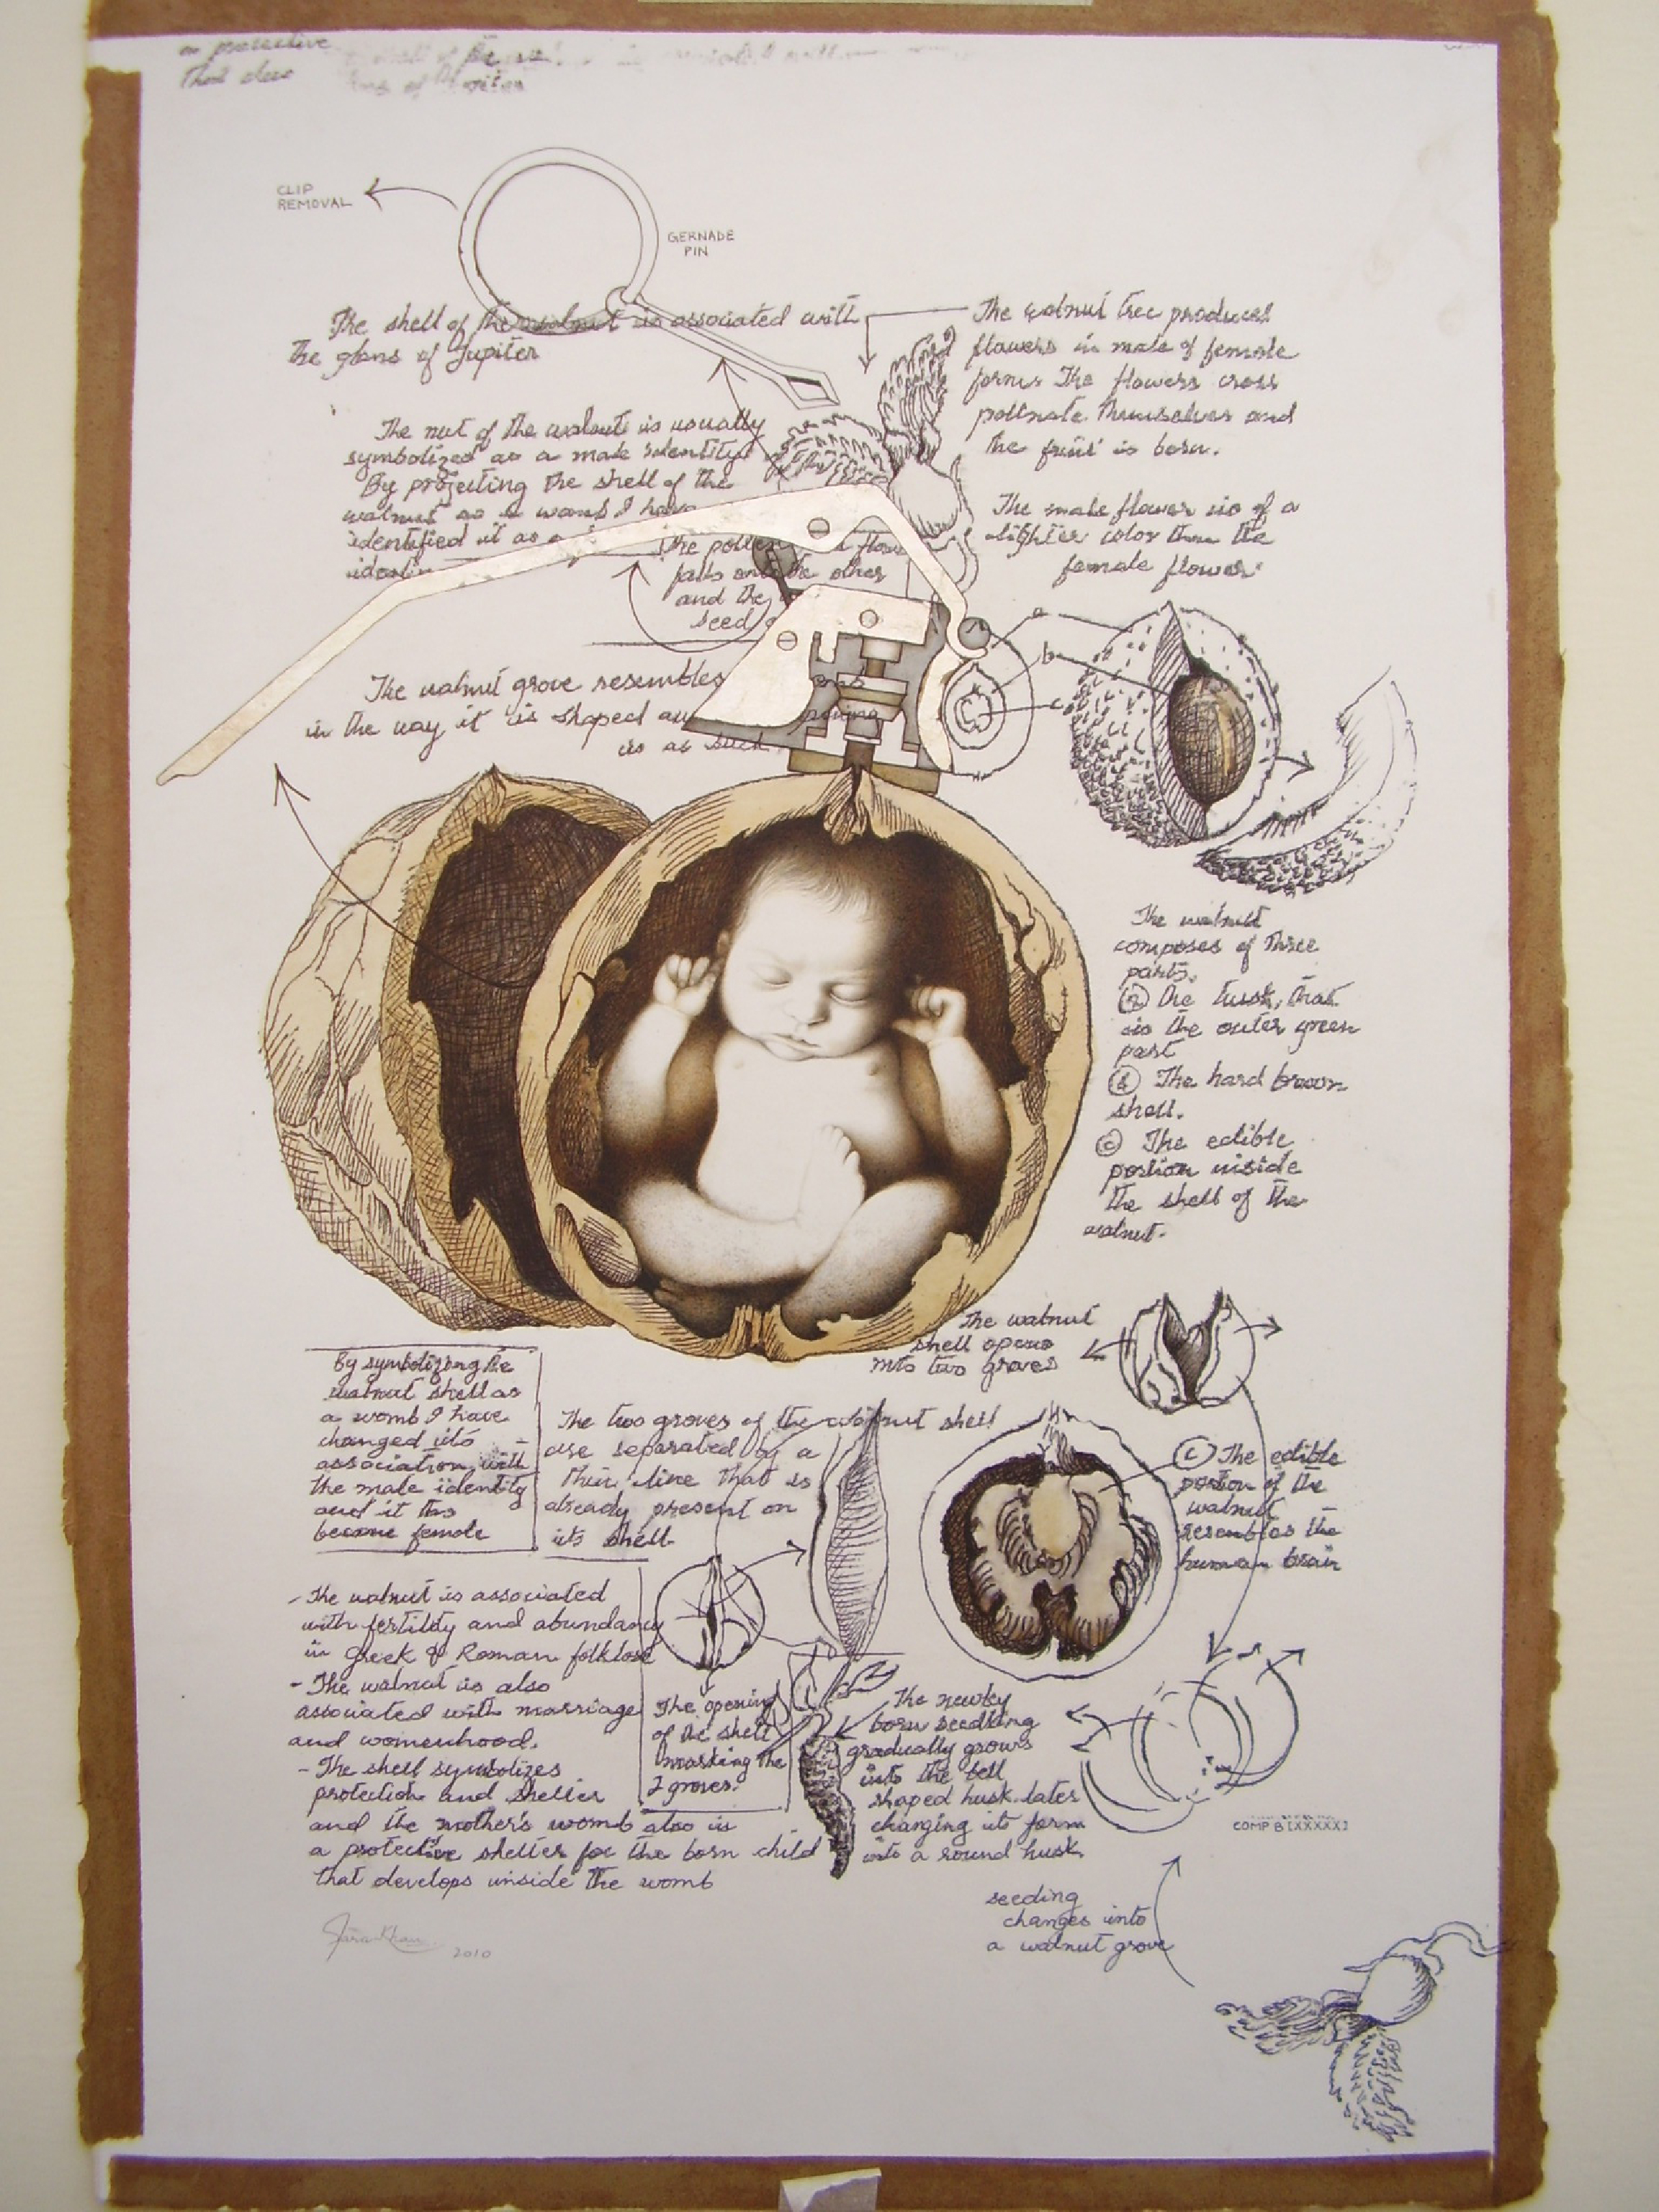 on protective
that deve
CLIP
REMOVAL
GERNADE
PIN
The shell of the walnut is associated with
the glans of Jupiter
The walnut tree produces
flowers in male & female
forms The flowers cross
pollnate themselves and
the fruit is born.
The nut of the walnut is usually
symbolized as a male identity
By projecting the shell of the
walnut as a womb I have
identified it as a
The male flower is of a
slighter color than the
female flower
the pollen flow
falls onto the other
and the
seed
The walnut grove resembles
in the way it is shaped
is as such.
a
b
c
The walnut
composes of three
parts.
(a) The husk, that
is the outer green
part
(b) The hard brown
shell.
(c) The edible
portion inside
the shell of the
walnut.
The walnut
shell opens
into two groves
By symbolizong the
walnut shell as
a womb I have
changed its
association with
the male identity
and it has
become female
The two groves of the walnut shell
are separated by a
thin line that is
already present on
its shell
(c) The edible
portion of the
walnut
resembles the
human brain
- The walnut is associated
with fertility and abundancy
in Greek & Roman folklose
- The walnut is also
associated with marriage
and womenhood.
- The shell symbolizes
protection and shelter
and the mother's womb also is
a protective shelter for the born child
that develops inside the womb
The opening
of the shell
marking the
2 groves.
The newley
born seedling
gradually grows
into the bell
shaped husk later
changing its form
into a round husk
COMP B [XXXXX]
seeding
changes into
a walnut grove
Sara Khan
2010